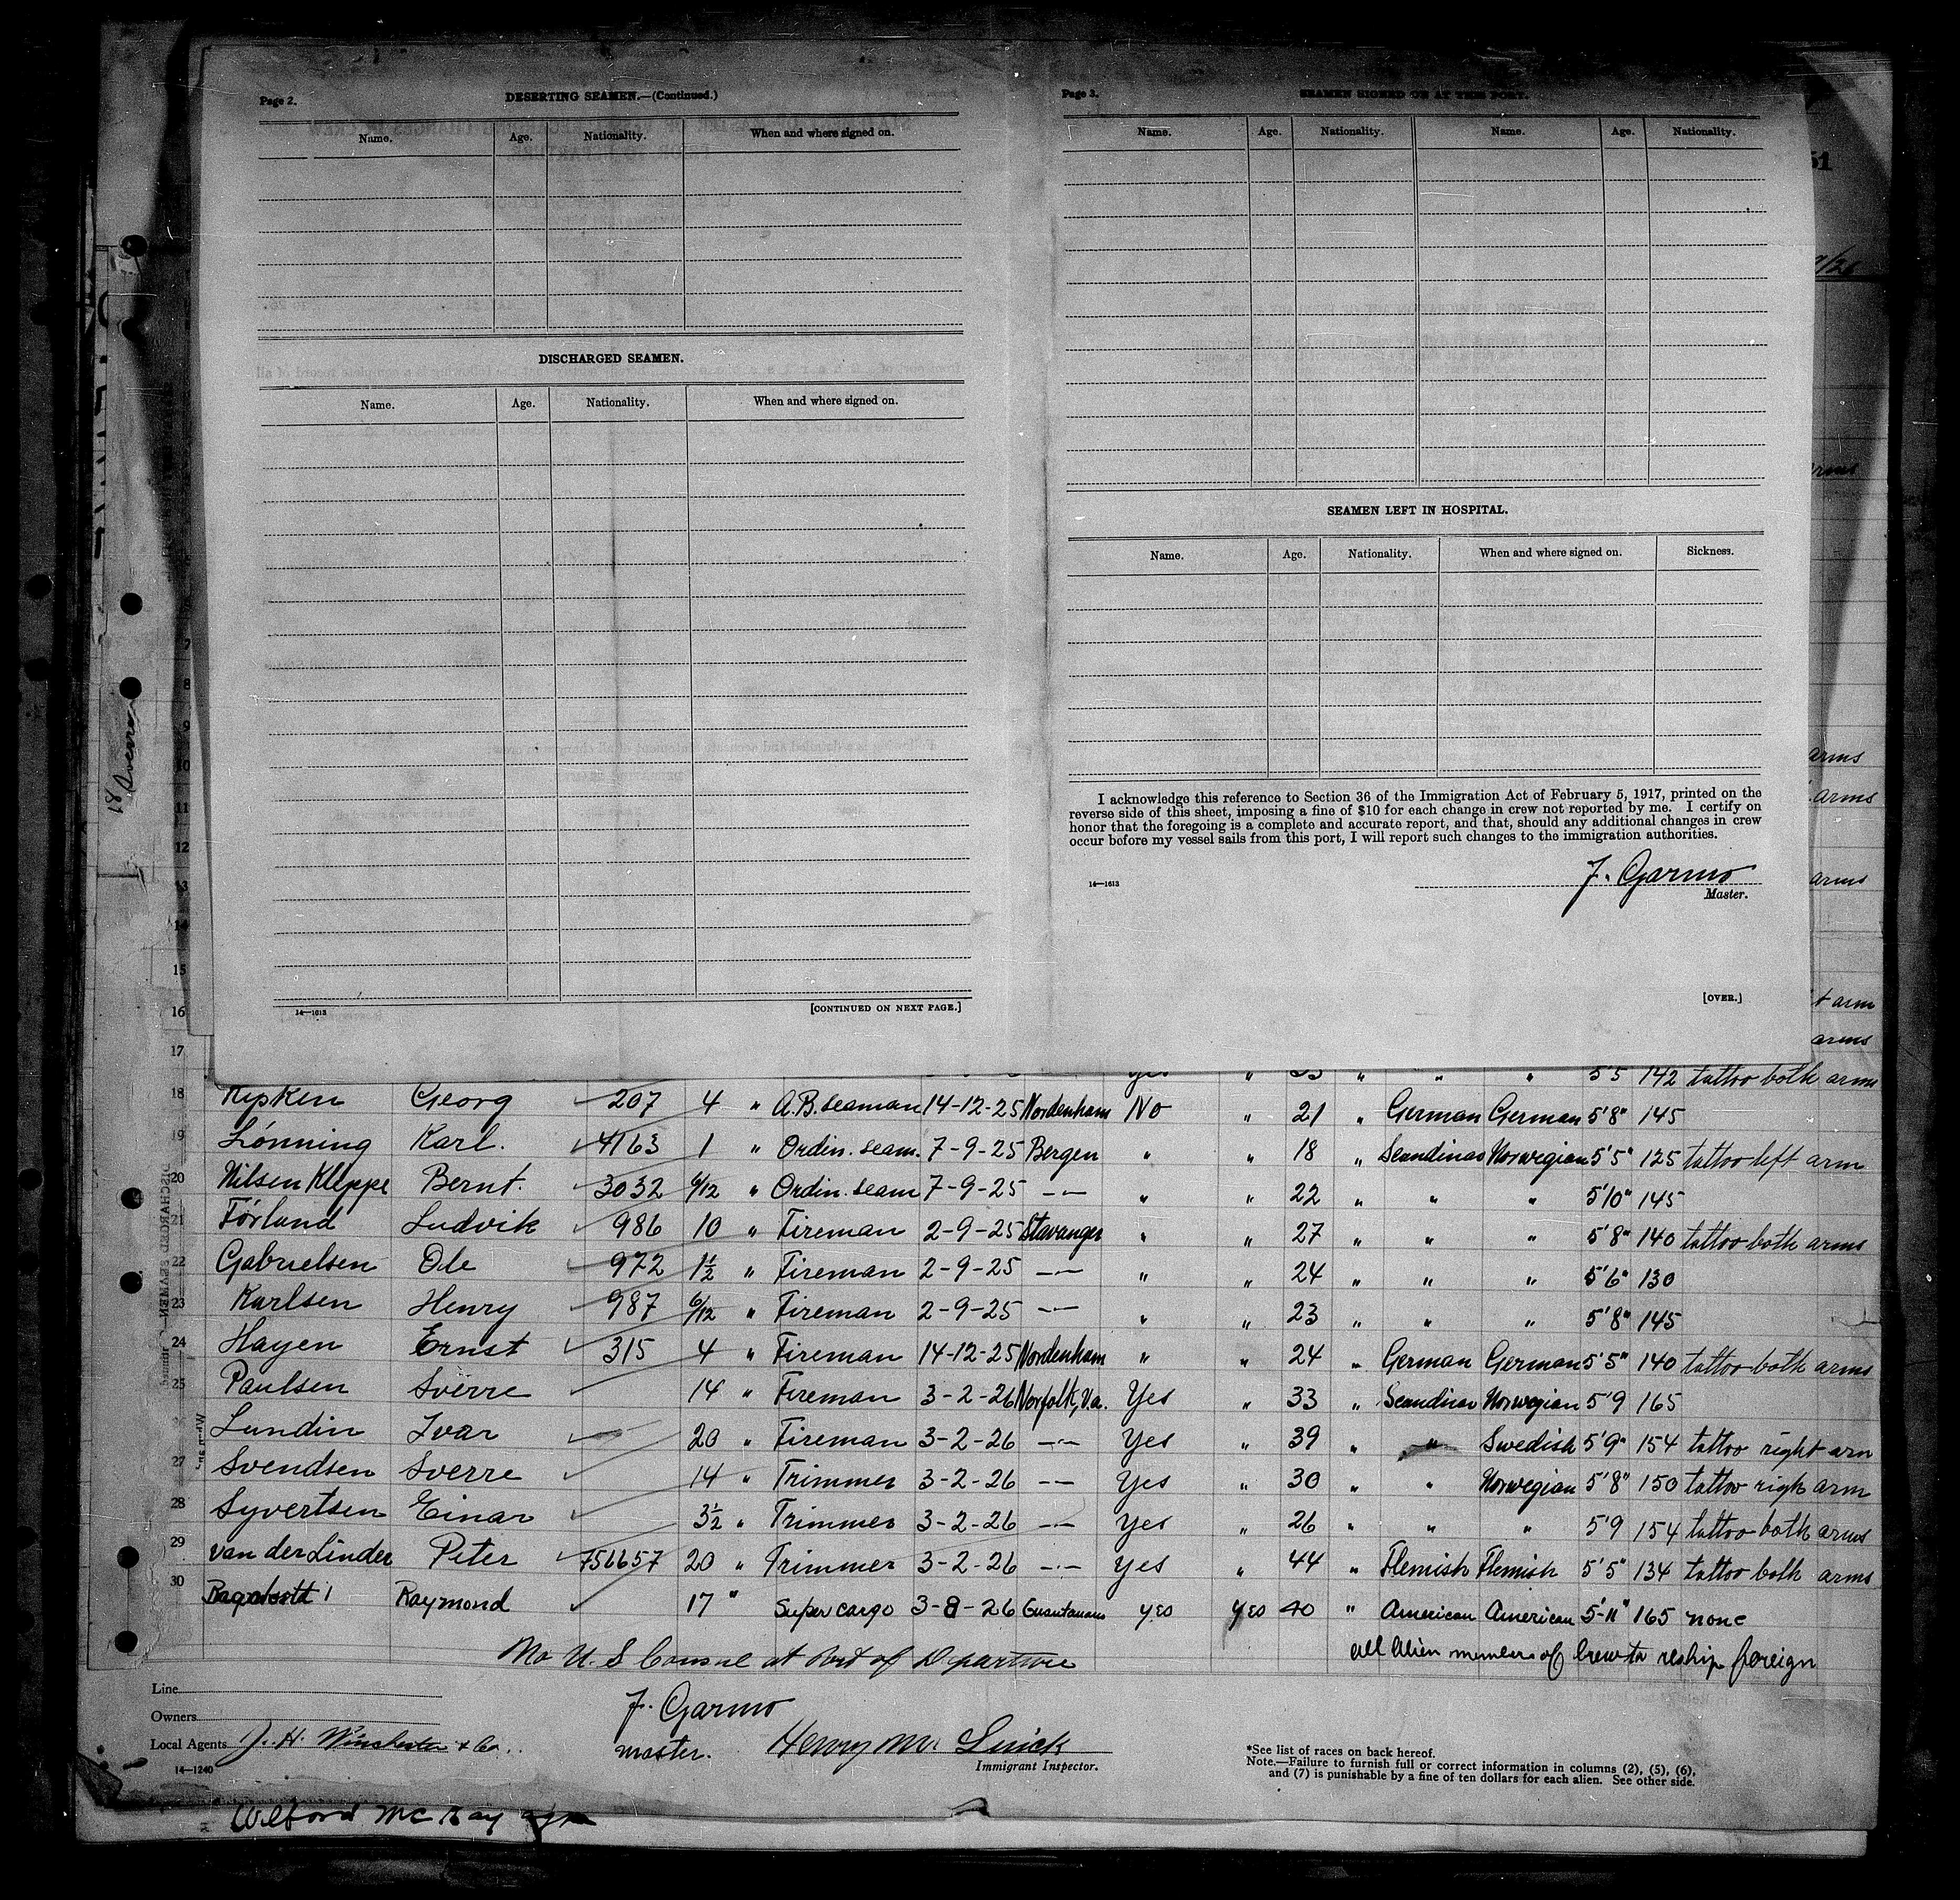 Page 2.
DESERTING SEAMEN.—(Continued.)
Name. Age. Nationality. When and where signed on.
DISCHARGED SEAMEN.
Name. Age. Nationality. When and where signed on.
14—1613
[CONTINUED ON NEXT PAGE.]
Page 3.
SEAMEN SIGNED ON AT THIS PORT.
Name. Age. Nationality. Name. Age. Nationality.
SEAMEN LEFT IN HOSPITAL.
Name. Age. Nationality. When and where signed on. Sickness.
I acknowledge this reference to Section 36 of the Immigration Act of February 5, 1917, printed on the
reverse side of this sheet, imposing a fine of $10 for each change in crew not reported by me. I certify on
honor that the foregoing is a complete and accurate report, and that, should any additional changes in crew
occur before my vessel sails from this port, I will report such changes to the immigration authorities.
J. Garmo
14—1613
Master.
[OVER.]
51
arms
arms
arms
arms
t arm
arms
7
8
9
10
11
12
13
14
15
16
17
yes " 33 " " " 5'5 142 tattoo both arms
18 Ripken Georg 207 4 " A.B. seaman 14-12-25 Nordenham No " 21 " German German 5'8" 145
19 Lønning Karl. 4163 1 " Ordin. seam. 7-9-25 Bergen " " 18 " Scandinav Norwegian 5'5" 125 tattoo left arm
20 Nilsen Kleppe Bernt. 3032 6/12 " Ordin. seam 7-9-25 -"- " " 22 " " " 5'10" 145
21 Førland Ludvik 986 10 " Fireman 2-9-25 Stavanger " " 27 " " " 5'8" 140 tattoo both arms
22 Gabrielsen Ole 972 1½ " Fireman 2-9-25 -"- " " 24 " " " 5'6" 130
23 Karlsen Henry 987 6/12 " Fireman 2-9-25 -"- " " 23 " " " 5'8" 145
24 Hayen Ernst 315 4 " Fireman 14-12-25 Nordenham " " 24 " German German 5'5" 140 tattoo both arms
25 Paulsen Sverre 14 " Fireman 3-2-26 Norfolk, Va. Yes " 33 " Scandinav Norwegian 5'9 165
Lundin Ivar 20 " Fireman 3-2-26 -"- Yes " 39 " " Swedish 5'9" 154 tattoo right arm
27 Svendsen Sverre 14 " Trimmer 3-2-26 -"- Yes " 30 " " Norwegian 5'8" 150 tattoo righ arm
28 Syvertsen Einar 3½ " Trimmer 3-2-26 -"- yes " 26 " " " 5'9 154 tattoo both arms
29 van der Linder Peter 756657 20 " Trimmer 3-2-26 -"- yes " 44 " Flemish Flemish 5'5" 134 tattoo both arms
30 Raymond 17 " Super cargo 3-8-26 Guantanamo yes yes 40 " American American 5'-11" 165 none
No U.S Consul at Port of Departure
all alien members of crew to reship foreign
Line
Owners
Local Agents J. H. Winchester & Co.
14—1240
J. Garmo
master.
Henry M.
Immigrant Inspector.
*See list of races on back hereof.
Note.—Failure to furnish full or correct information in columns (2), (5), (6),
and (7) is punishable by a fine of ten dollars for each alien. See other side.
Wilford McKay